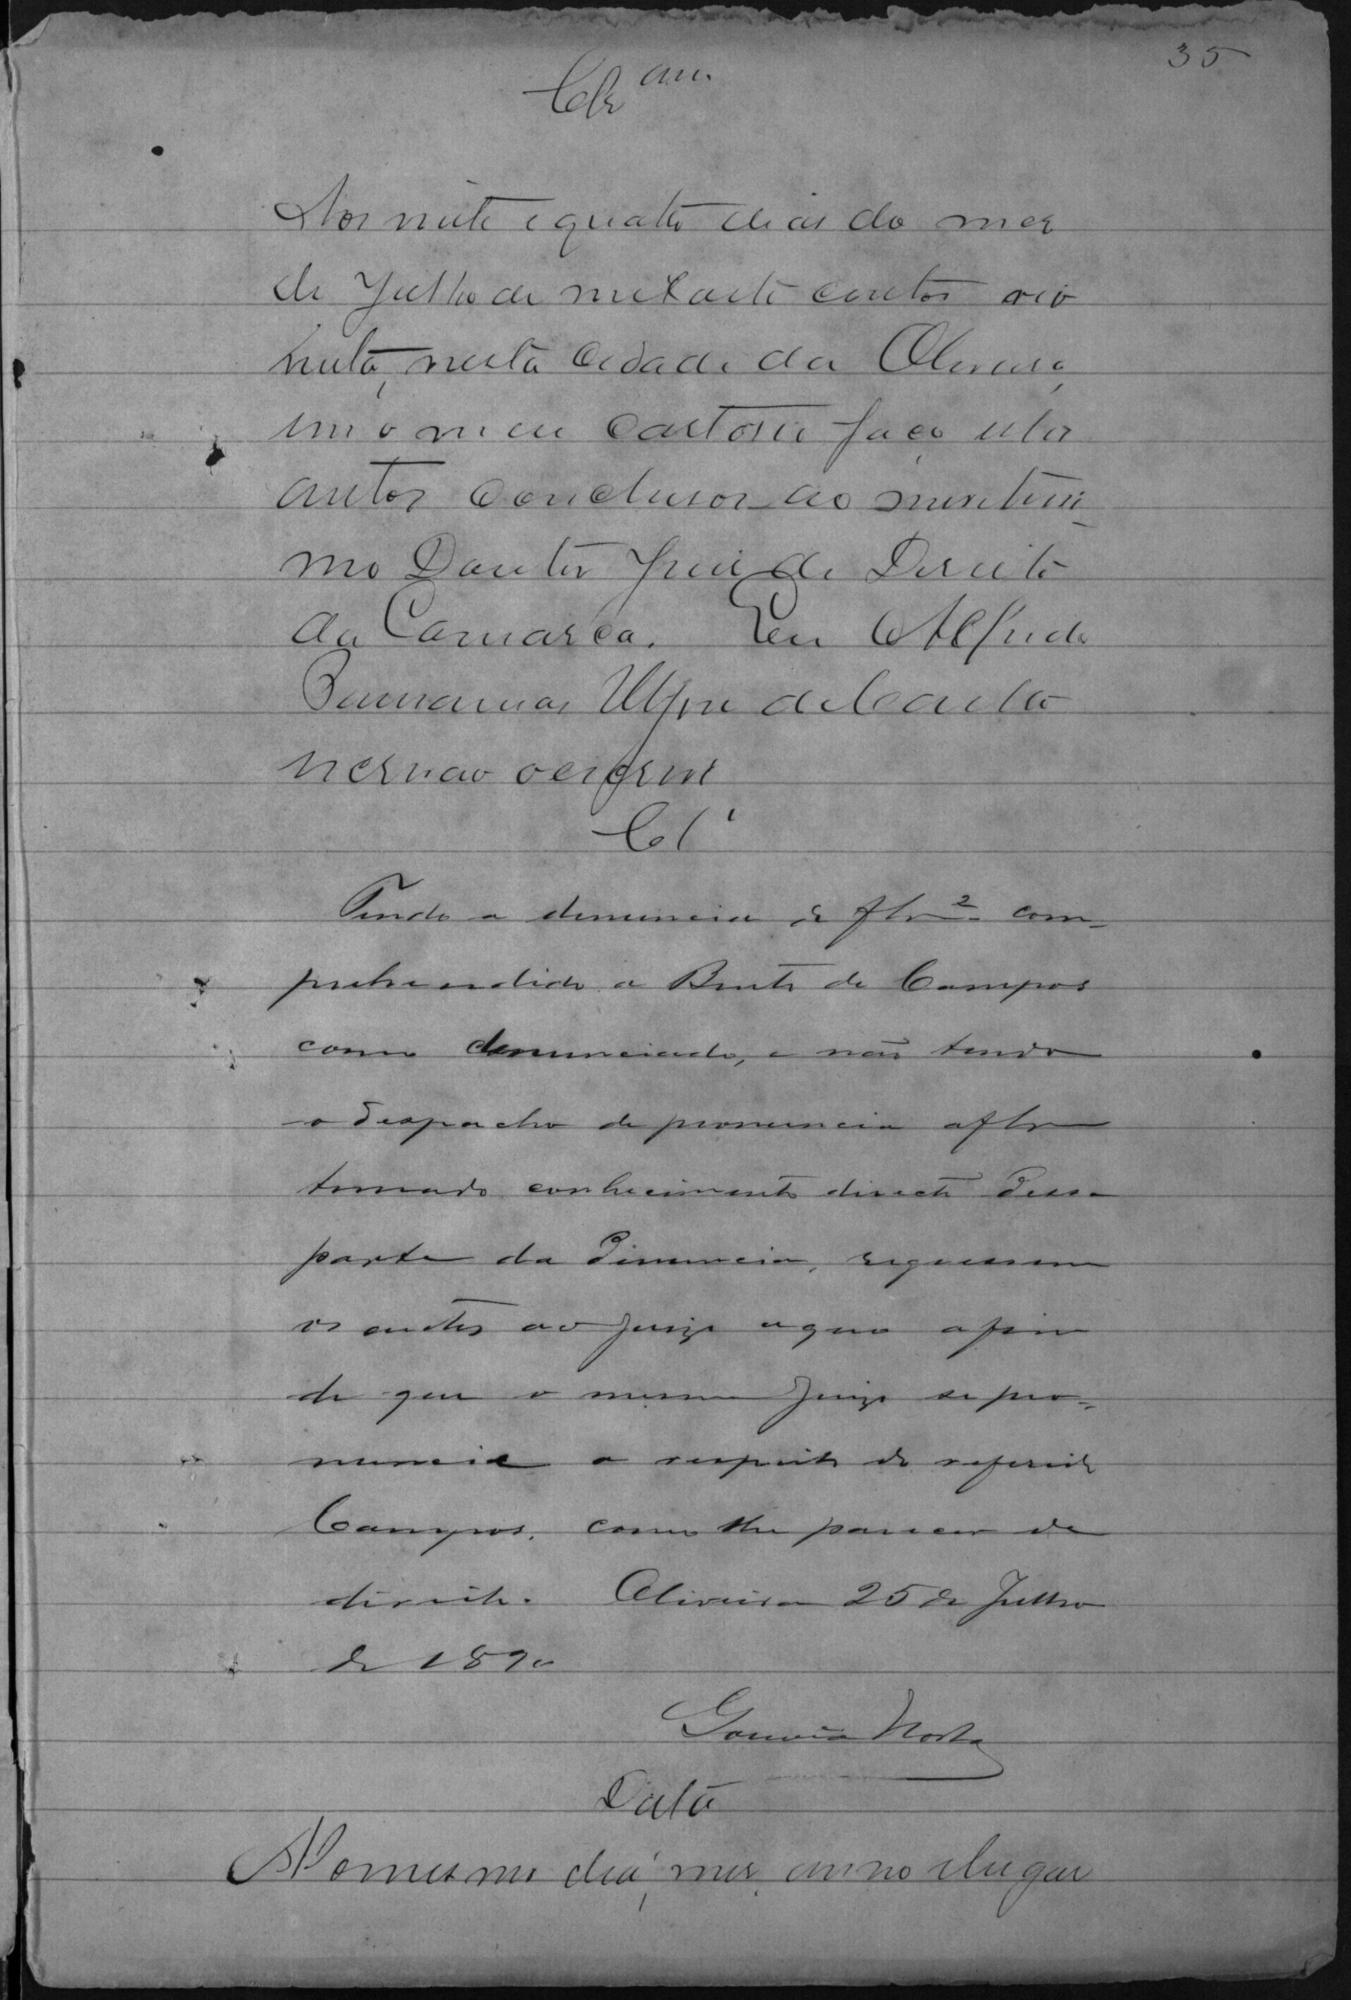 35
Clzam.
Aos vinte e quatro dias do mez
de Julho de mil oito centos e no
venta, nesta Cidade da Oliveira,
em o meu cartorio faço estes
autos conclusos ao meretissi
mo Doutor Juiz de Direito
da Comarca. Eu Alfredo
de Castro
escrivão o escrevi
Cl.
Tendo a denuncia de fls 2 com-
prehendido a Bento de Campos
como denunciado, e não tendo
o despacho de pronuncia a fls
tomado conhecimento directo dessa
parte da denuncia, regressem
os autos ao Juizo a quo afim
de que o mesmo Juizo se pro-
nuncie a respeito do referido
Campos, como lhe parecer de
direito. Oliveira 25 de Julho
de 1890
Gouvêa Horta
Data
No mesmo dia, mez, anno e lugar